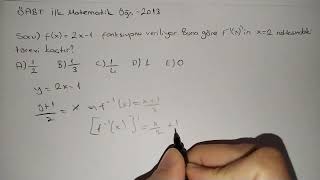 ÖABT İlk Matematik Öğr. -2013
Soru) f(x) = 2x-1 fonksiyonu veriliyor. Buna göre f⁻¹(x)'in x=2 noktasındaki
türevi kaçtır?
A) 1/2 B) 1/3 C) 1/4 D) 1 E) 0
y = 2x-1
y+1/2 = x f⁻¹(x) = x+1/2
[f⁻¹(x)]' = x/2 + 1